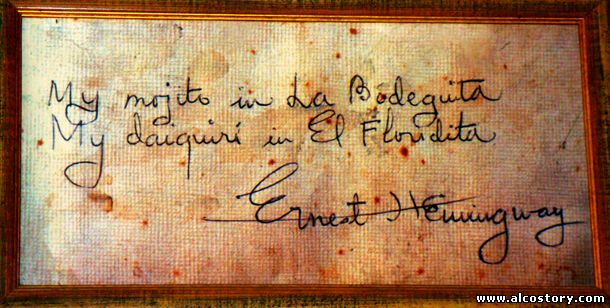 My mojito in La Bodeguita
My daiquirí in El Floridita
Ernest Hemingway
www.alcostory.com